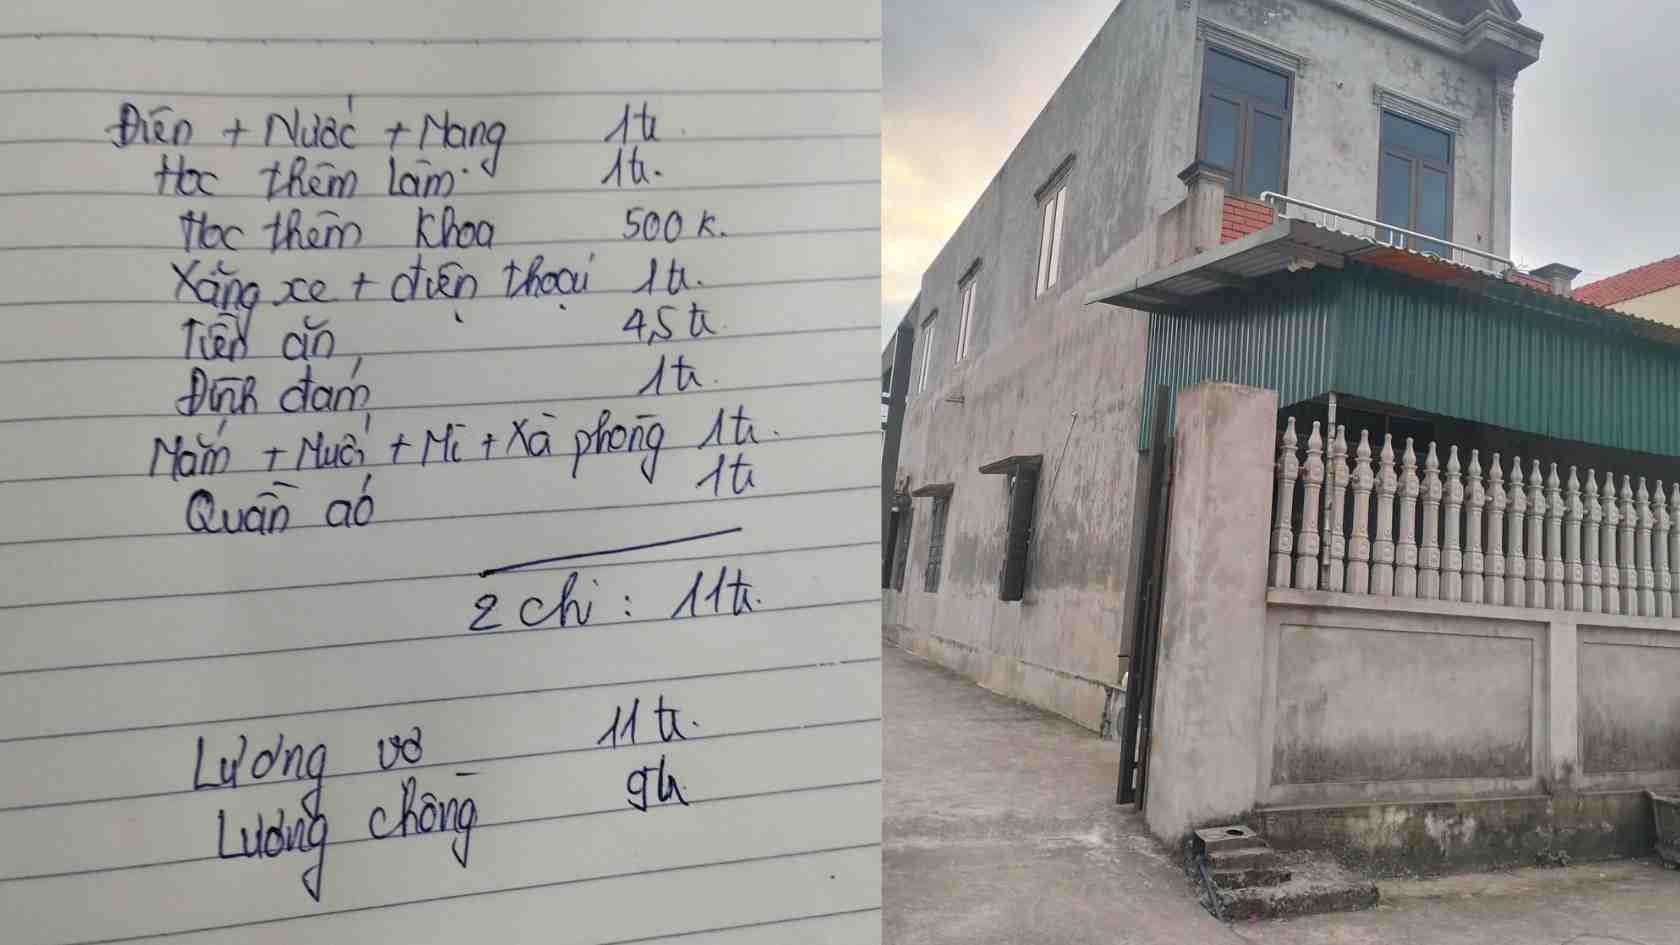 Điện + Nước + Mạng 1tr.
Học thêm Lâm 1tr.
Học thêm Khoa 500k.
Xăng xe + điện thoại 1tr.
Tiền ăn 4,5tr.
Đình đám 1tr.
Mắm + Muối + Mì + Xà phòng 1tr.
Quần áo 1tr
Σ chi : 11tr.
Lương vợ 11tr.
Lương chồng 9tr